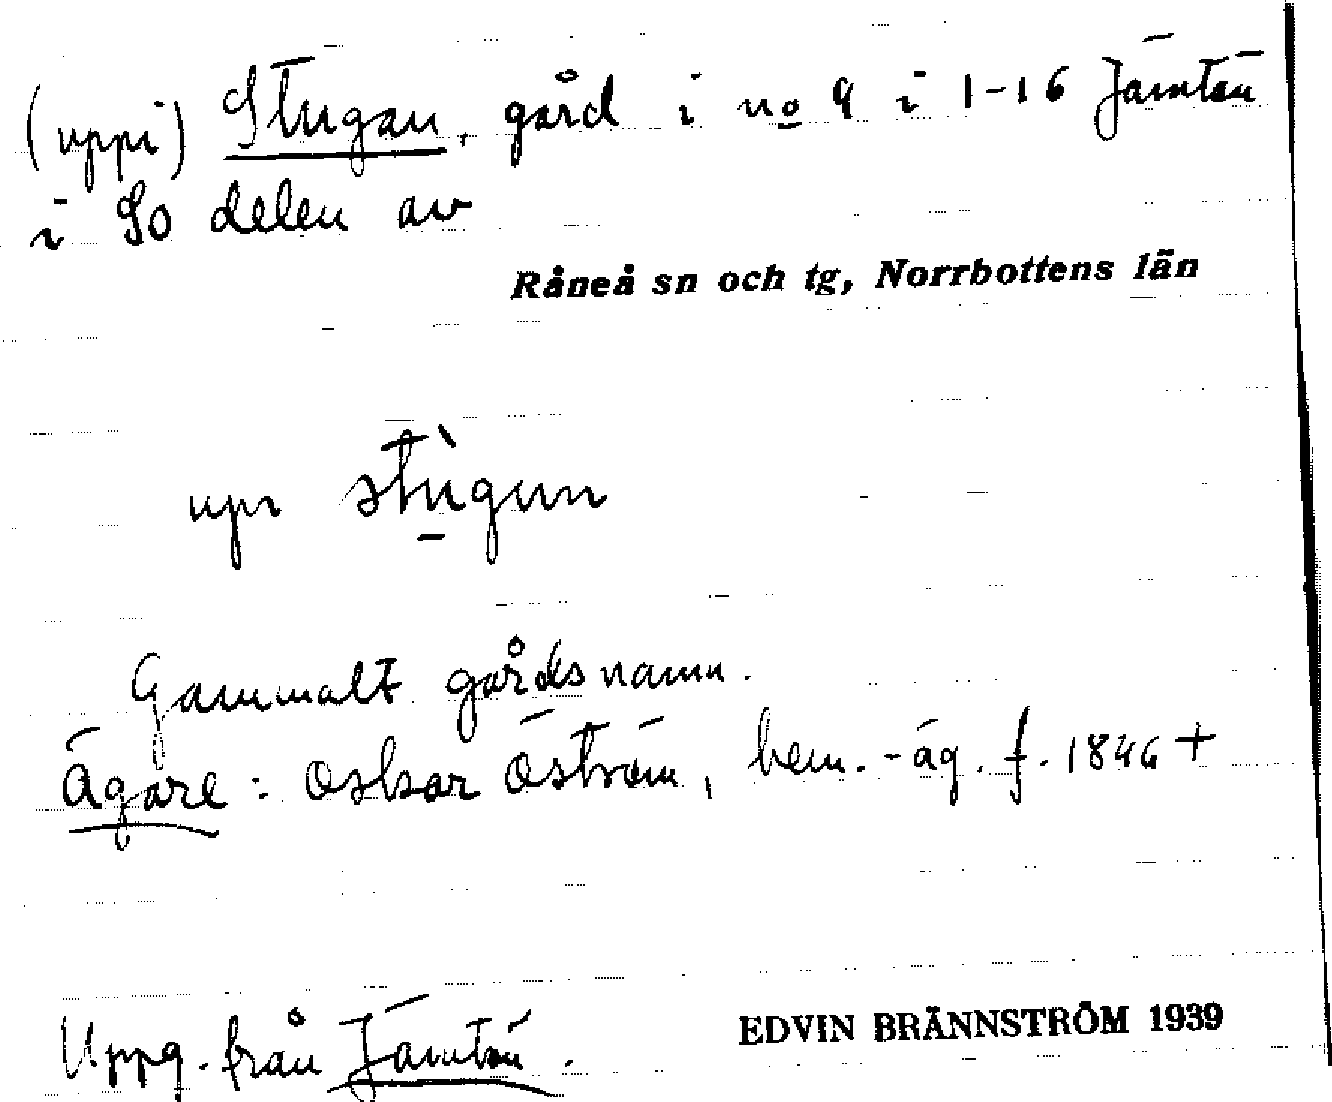 (uppi) Stugan, gård i no 9 i 1-16 Jämtön
i So delen av
Råneå sn och tg, Norrbottens län
upi stùgun
Gammalt gårdsnamn.
Ägare: Oskar Öström, hem.-äg. f. 1846 +
Uppg. från Jämtön.
EDVIN BRÄNNSTRÖM 1939